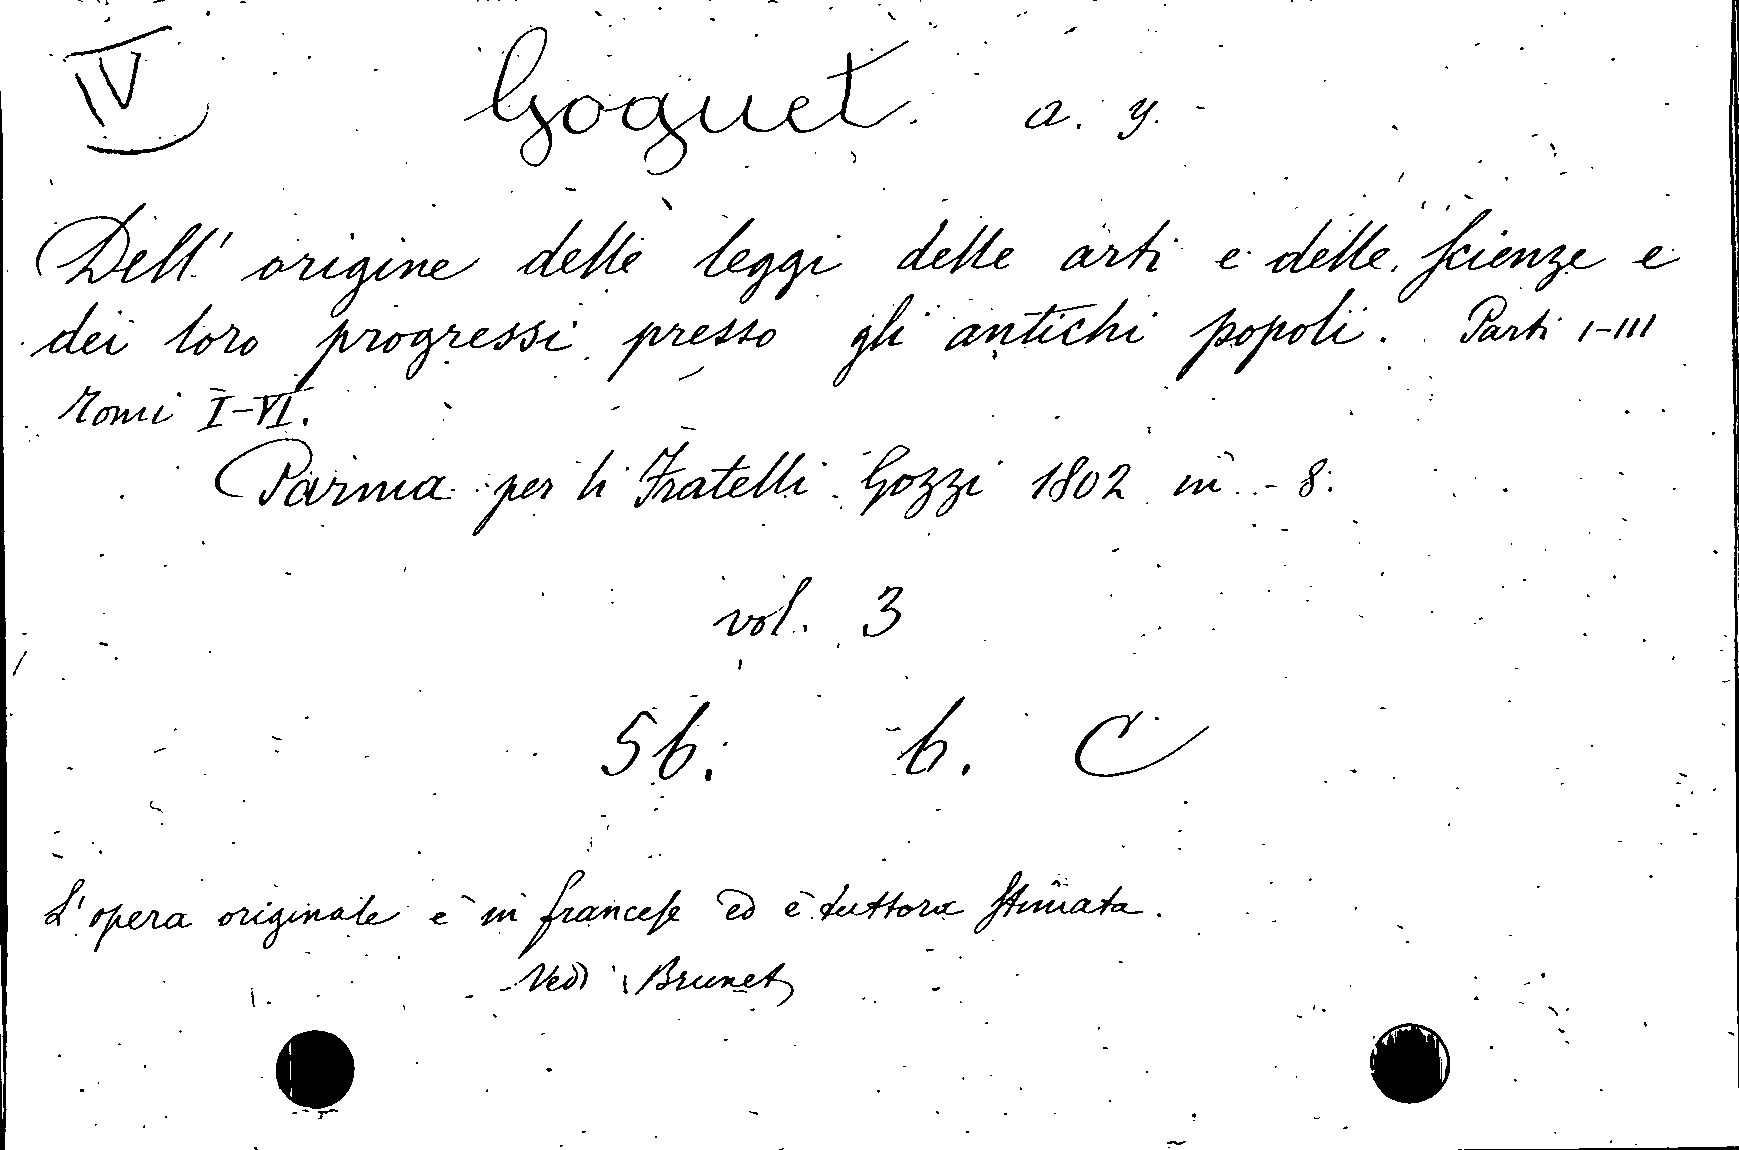 IV Goguet. a. y.
Dell' origine delle leggi delle arti e delle scienze e
dei loro progressi presso gli antichi popoli. Parti I-III
Tomi I-VI.
Parma per li Fratelli Gozzi 1802 in - 8.
vol. 3
56. 6. C
L'opera originale è in francese ed è tuttora stimata.
Vedi Brunet